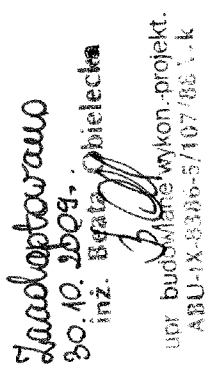 Zaadaptowano
30.10.2009r.
inż. Beata Obielecka
upr budowlane wykon.-projekt.
ABU-IX-8386-5/107/86